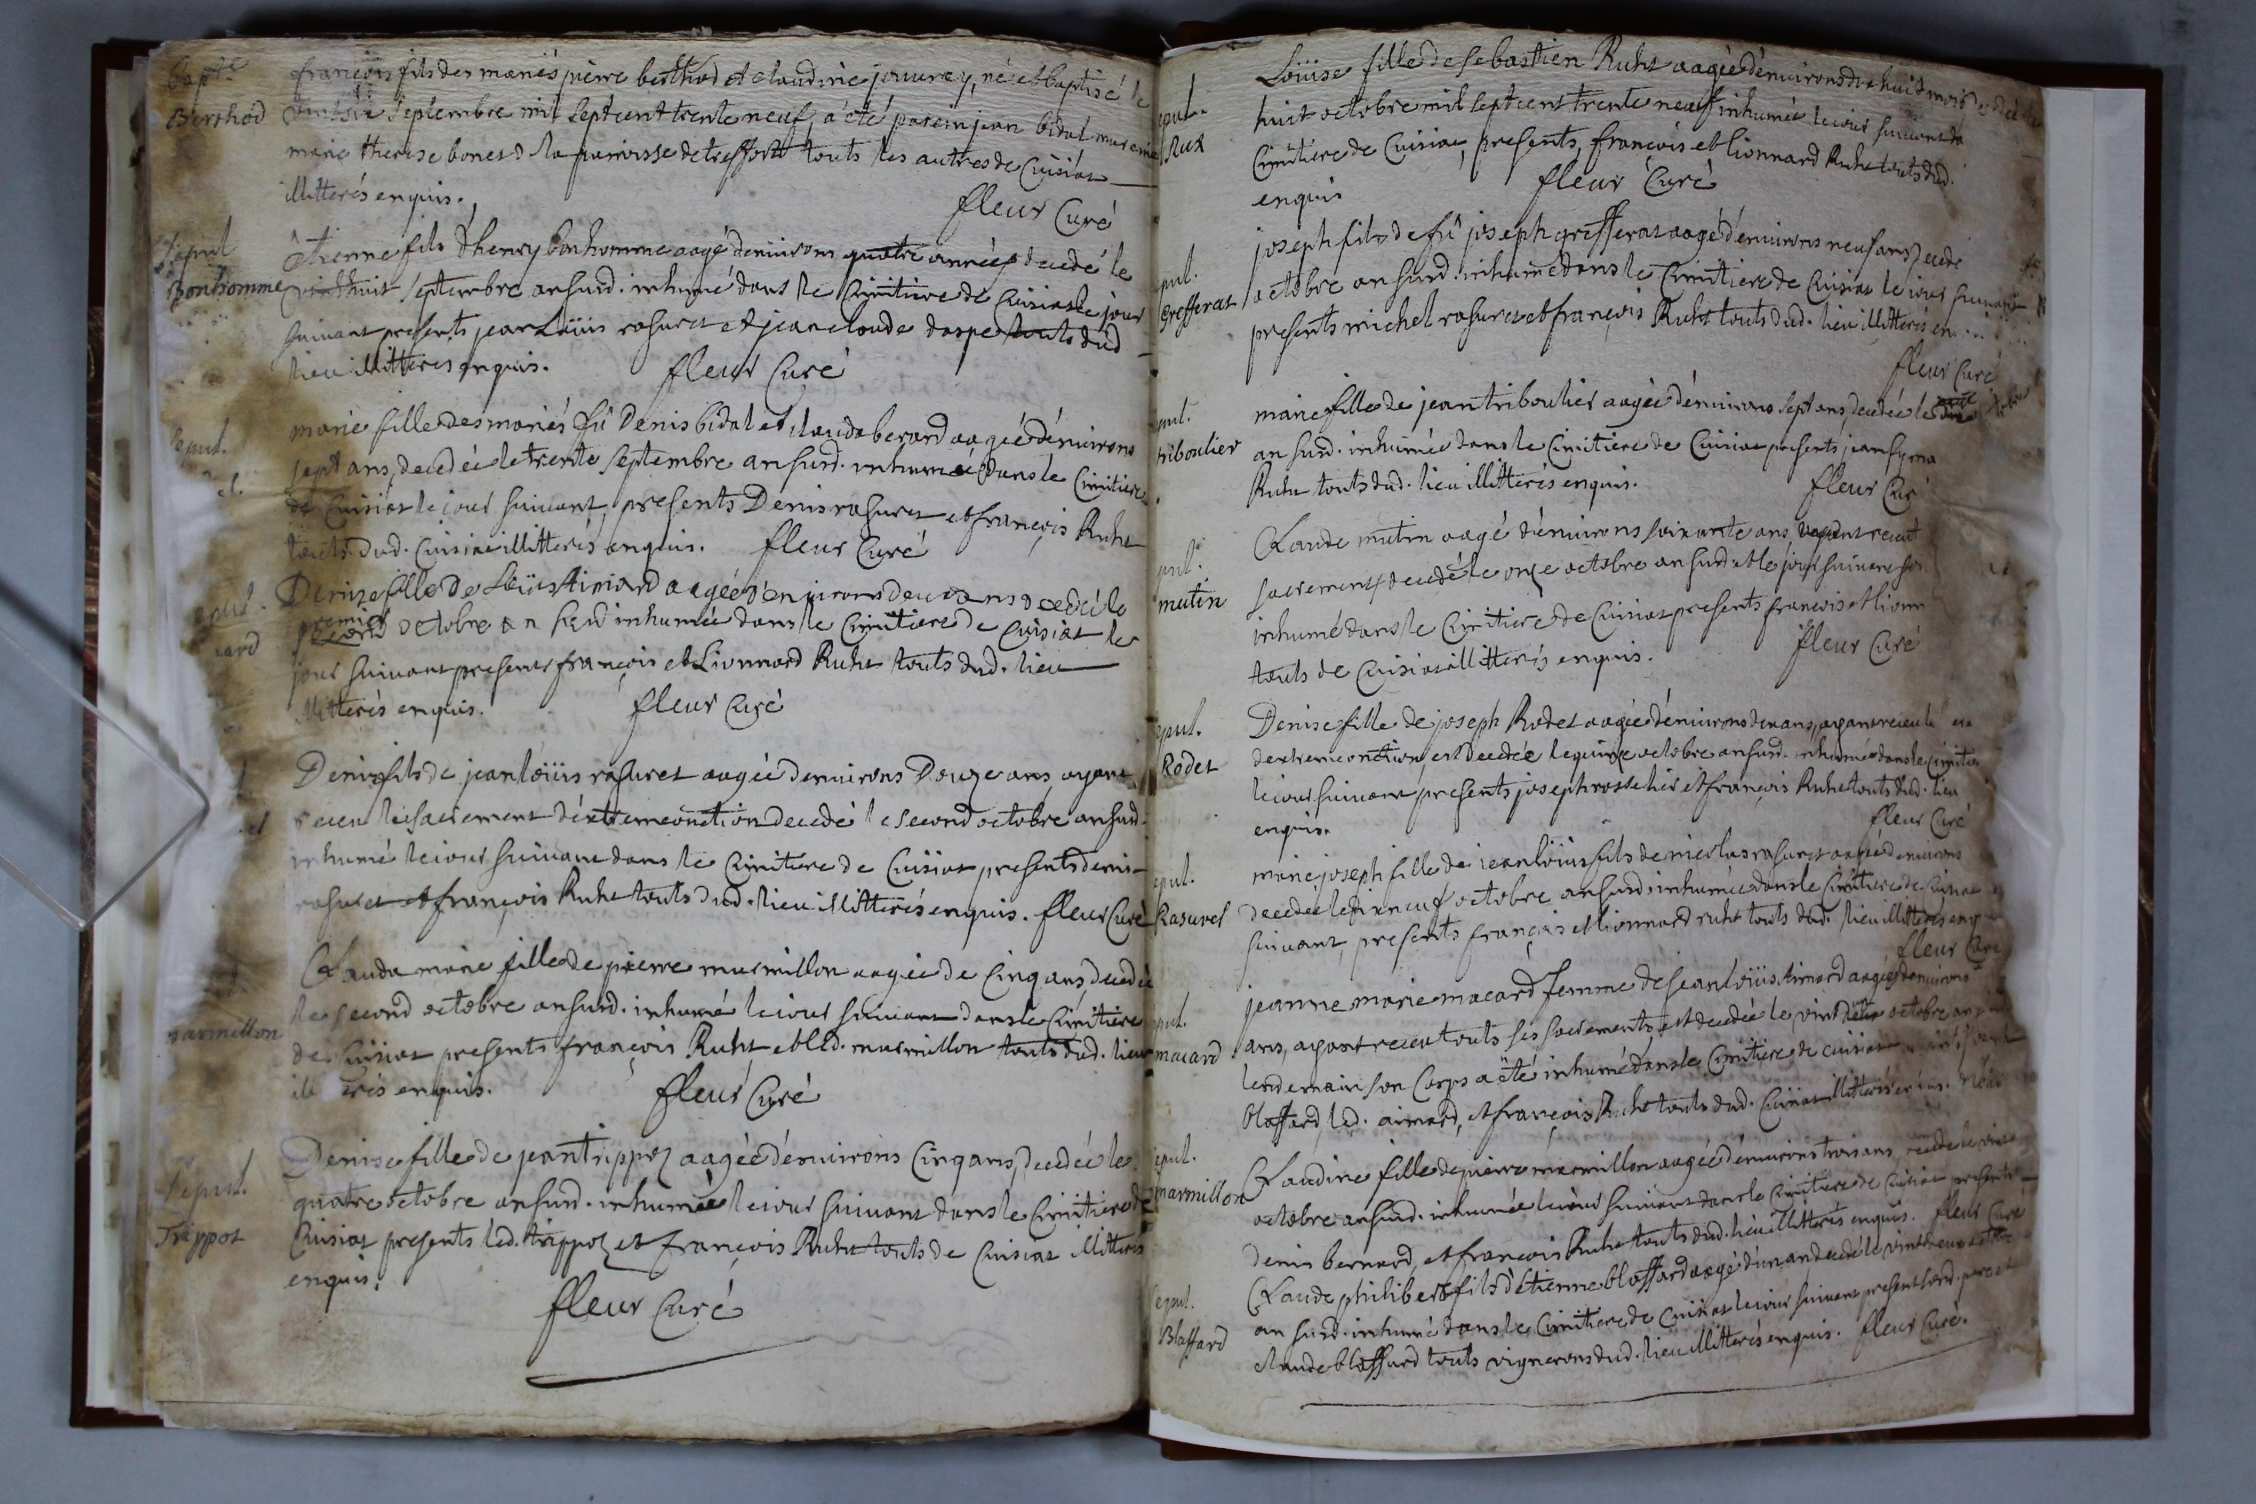 Bapt.
Berthod
françois fils des mariés pierre berthod et claudine jouvrey, né et baptisé le
vintsix septembre mil sept cent trente neuf, a été parein jean bidal mareine
marie therese bones de la parroisse de treffort touts les autres de Cuisiat
illitterés enquis.
fleur Curé
Sepul
Bonhomme
êtienne fils d'henry bonhomme aagé d'environs quatre années decedé le
vinthuit septembre an susd. inhumé dans le Cimitiere de Cuisiat le jour
suivant presents jean Loüis rasuret et jean claude daspe touts dud
lieu illitteres enquis.
fleur Curé
Sepul.
marie fille des mariés fû Denis bidal et clauda berard aagée d'environs
sept ans, decedée le trente septembre an susd. inhumée dans le Cimitiere
de Cuisiat le jour suivant, presents Denis rasuret et françois Ruht
touts dud. Cuisiat illitterés enquis.
fleur Curé
Denize fille de Loüis Aimard aagée d'environs deux ans decedé le
premier octobre an susd inhumée dans le Cimitiere de Cuisiat le
jour suivant presents françois et Lionnard Ruht touts dud. lieu
illitterés enquis.
fleur Curé
Denis fils de jean loüis rasuret aagée d'environs Douze ans, ayant
receu le sacrement d'extremeonction decedé le second octobre an susd.
inhumé le jour suivant dans le Cimitiere de Cuisiat presents denis
rasuret et françois Ruht touts dud. lieu illitterés enquis.
fleur Curé
marmillon
Clauda marie fille de pierre marmillon aagée de Cinq ans, decedée
le second octobre an susd. inhumé le jour suivant dans le Cimitiere
de Cuisiat presents françois Ruht et led. marmillon touts dud. lieu
ill erés enquis.
fleur Curé
Sepul.
Trippot
Denise fille de jean trippoz aagée d'environs Cinq ans, decedée le
quatre octobre an susd. inhumée le jour suivant dans le Cimitiere de
Cuisiat presents led. trippoz et françois Ruht touts de Cuisiat illitterés
enquis.
fleur Curé
epul.
Rux
Loüise fille de sebastien Ruht aagée d'environs dixhuit mois
huit octobre mil sept cent trente neuf inhumée le jour suivant da
Cimitiere de Cuisiat, presents, françois et lionnard Ruht touts dud.
enquis
fleur Curé
pul.
Grefferat
joseph fils de fû joseph grefferat aagé d'environs neuf ans, decedé
octobre an susd. inhumé dans le Cimitiere de Cuisiat le jour suivant
presents michel rasuret et françois Ruht touts dud. lieu illitterés en
fleur Curé
pul.
triboulier
marie fille de jean triboulier aagée d'environs sept ans, decedée le
an susd. inhumée dans le Cimitiere de Cuisiat presents jean
Ruht touts dud. lieu illitterés enquis.
fleur Cur
pul.
mutin
Claude mutin aagé d'environs soixante ans, ayant receut
sacrements decedé le onze octobre an susd. et le jour suivant
inhumé dans le Cimitiere de Cuisiat presents françois et lionn
touts de Cuisiat illitterés enquis.
fleur Curé
epul.
Rodet
Denise fille de joseph Rodet aagée d'environs dix ans, ayant receu le
d'extremeonction, est decedée le quinze octobre an susd. inhumée dans le Cimitie
le jour suivant presents joseph rosselier et françois Ruht touts dud. lieu
enquis.
fleur Curé
epul.
Rasuret
marie joseph fille de jean loüis fils de nicolas rasuret aagée d'environs
decedée le dixneuf octobre an susd. inhumée dans le Cimitiere de Cuisiat
suivant, presents françois et lionnard ruht touts dud. lieu illitterés enq
fleur Curé
pul.
macard
jeanne marie macard femme de jean loüis Aimard aagée d'environs
ans, ayant receu touts ses sacrements, est decedée le vint octobre an
lendemain son Corps a été inhumé dans le Cimitiere de cuisiat
blaffard, led. aimard, et françois Ruht touts dud. Cuisiat illitterés
epul.
marmillon
Claudine fille de pierre marmillon aagée d'environs trois ans, decedée le vint
octobre an susd. inhumée le jour suivant dans le Cimitiere de Cuisiat presents
denis bernard, et françois Ruht touts dud. lieu illitterés enquis.
fleur Curé
Sepul.
Blaffard
Claude philibert fils d'êtienne blaffard aagé d'un an decedé le vintdeux octobre
an susd. inhumé dans le Cimitiere de Cuisiat le jour suivant present sond. pere et
claude blaffard touts vignerons dud. lieu illitterés enquis.
fleur Curé.